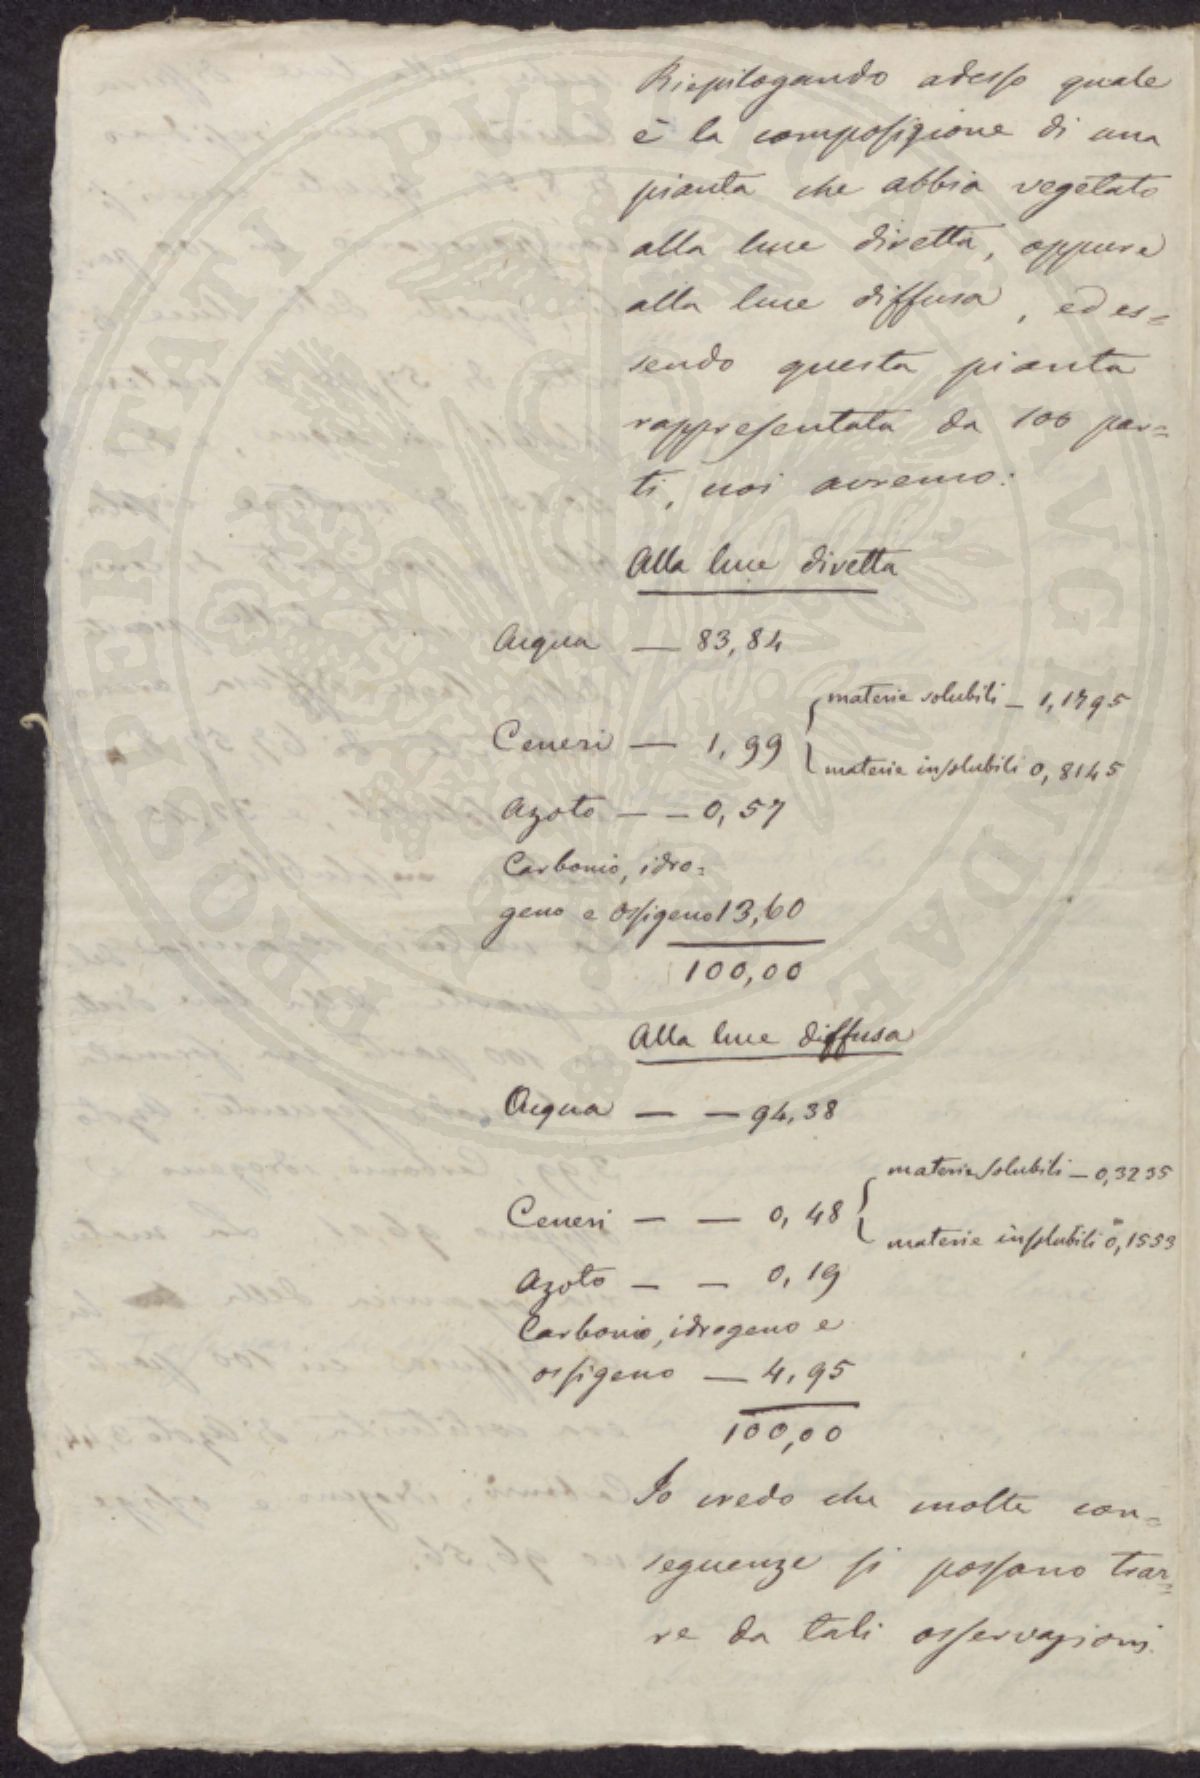 Riepilogando adesso quale
è la composizione di una
pianta che abbia vegetato
alla luce diretta, oppure
alla luce diffusa, ed es=
sendo questa pianta
rappresentata da 100 par=
ti, noi avremo:
Alla luce diretta
Acqua — 83,84
materie solubili — 1,1795
Ceneri — 1,99
materie insolubili 0,8145
Azoto — — 0,57
Carbonio, idro=
geno e ossigeno 13,60
100,00
Alla luce diffusa
Acqua — — 94,38
materie solubili — 0,3235
Ceneri — — 0,48
materie insolubili 0,1553
Azoto — — 0,19
Carbonio, idrogeno e
ossigeno — 4,95
100,00
Io credo che molte con=
seguenze si possano trar=
re da tali osservazioni.
PROSPERITATI PVBLICAE AVGENDAE